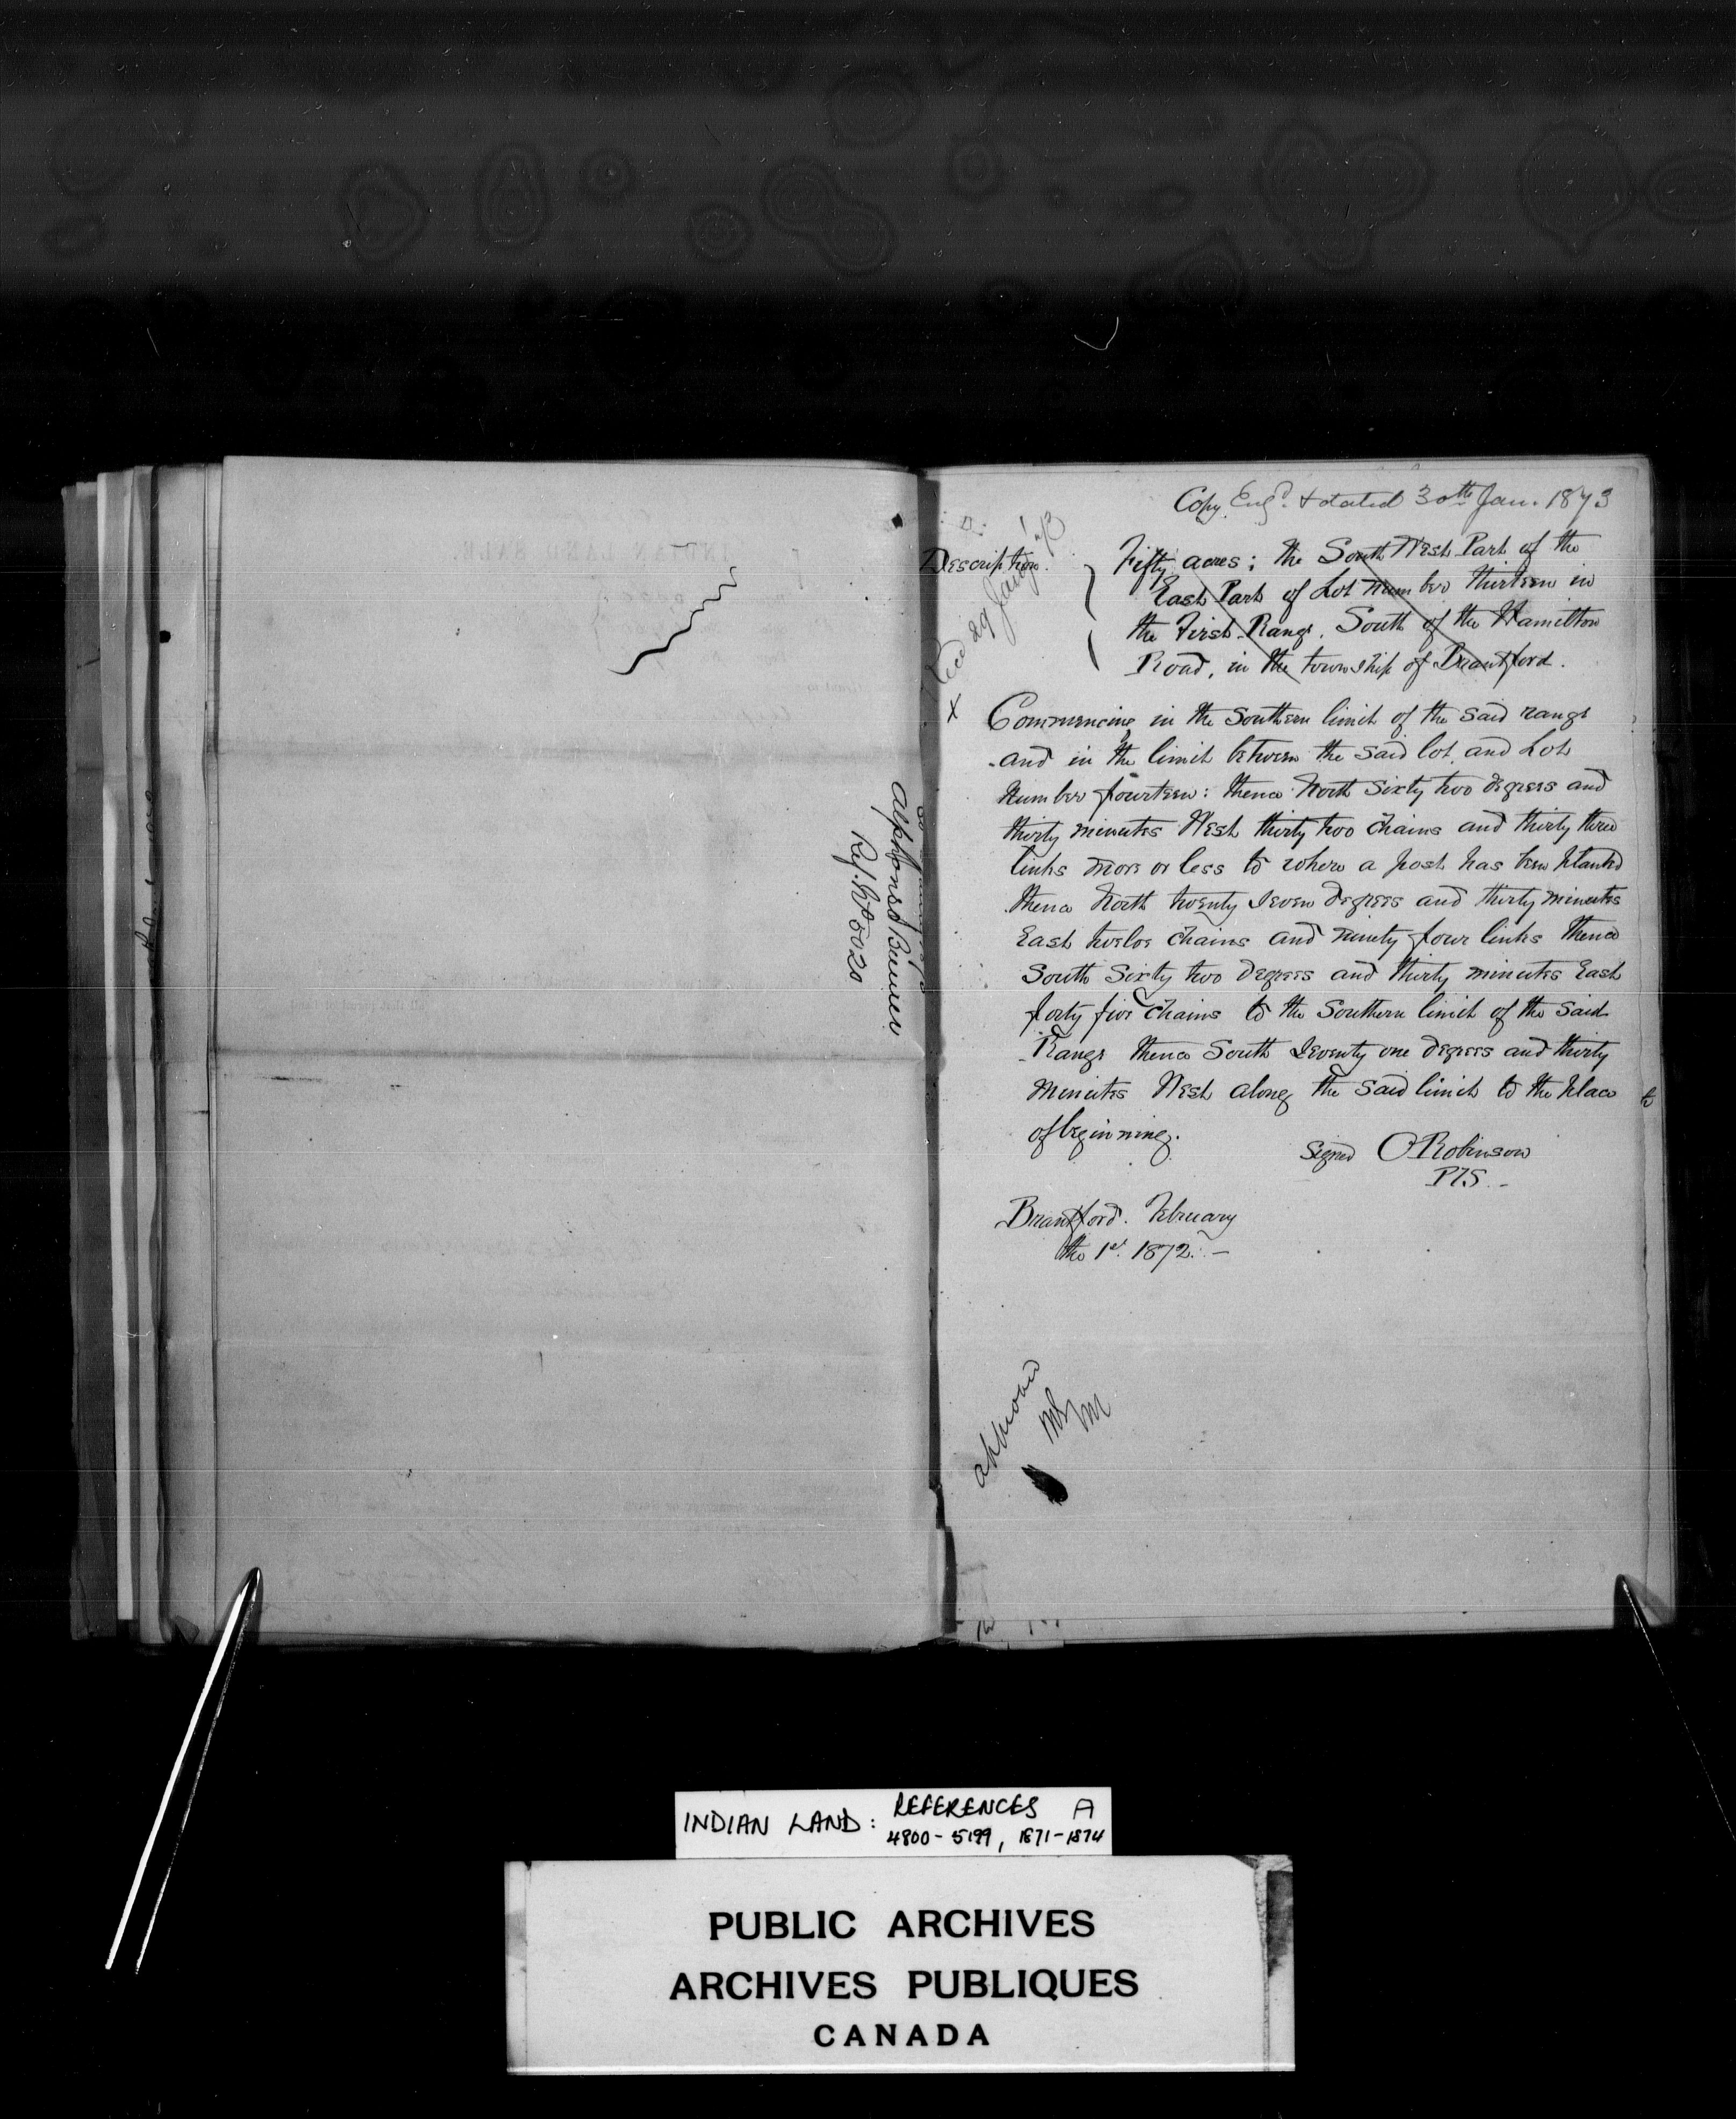 Copy Engd. & dated 30th Jan. 1873
Description.
Recd 29 Jany /73
Fifty acres; the South West Part of the
East Part of Lot Number thirteen in
the First Range, South of the Hamilton
Road, in the township of Brantford.
X
Commencing in the Southern limit of the said range
and in the limit between the said lot, and Lot
Number fourteen: thence North Sixty two degrees and
thirty minutes West thirty two chains and thirty three
links more or less to where a post has been planted
thence North twenty seven degrees and thirty minutes
East twelve chains and ninety four links thence
South Sixty two degrees and thirty minutes East
forty five chains to the Southern limit of the said
Range thence South Seventy one degrees and thirty
minutes West along the said limit to the place
of beginning.
Signed O Robinson
P.L.S.
Brantford. February
the 1st. 1872. –
approved
Alphonse
Ref. No 5020
INDIAN LAND SALE.
INDIAN LAND: REFERENCES A
4800 - 5199, 1871-1874
PUBLIC ARCHIVES
ARCHIVES PUBLIQUES
CANADA